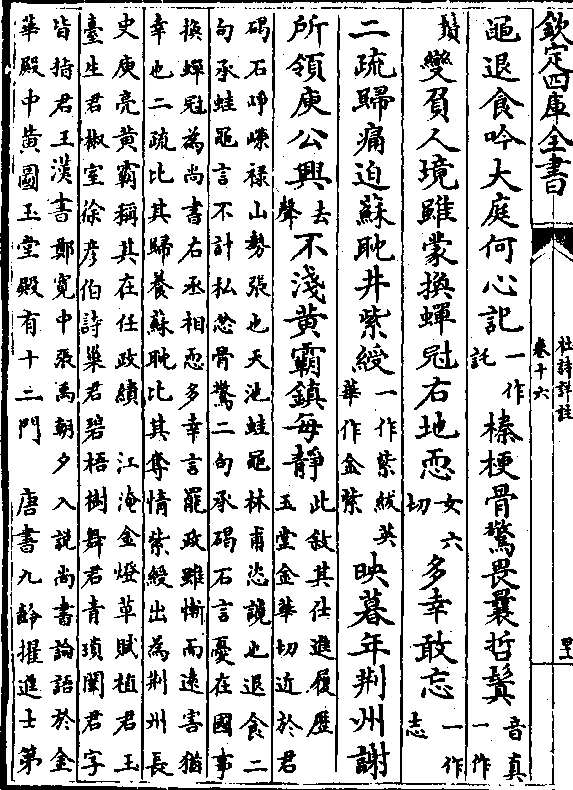 欽定四庫全書
杜詩詳註
卷十六
黽退食吟大庭何心記一作託榛梗骨驚畏曩哲鬒音真一作
鬚變負人境雖蒙換蟬冠右地恧女六切多幸敢忘一作志
二疏歸痛迫蘇耽井紫綬一作紫紱英華作金紫映暮年荊州謝
所領庾公興去聲不淺黃霸鎮每靜此敘其仕進履歷玉堂金華切近於君
碣石崢嶸禄山勢張也天池蛙黽林甫恣讒也退食二
句承蛙黽言不計私忿骨驚二句承碣石言憂在國事
換蟬冠為尚書右丞相恧多幸言罷政雖慚而遠害猶
幸也二疏比其歸養蘇耽比其奪情紫綬出為荊州長
史庾亮黃霸稱其在任政績　江淹金燈草賦植君玉
臺生君椒室徐彥伯詩巢君碧梧樹舞君青瑣闥君字
皆指君王漢書鄭寬中張禹朝夕入説尚書論語於金
華殿中黃圖玉堂殿有十二門　唐書九齡擢進士第